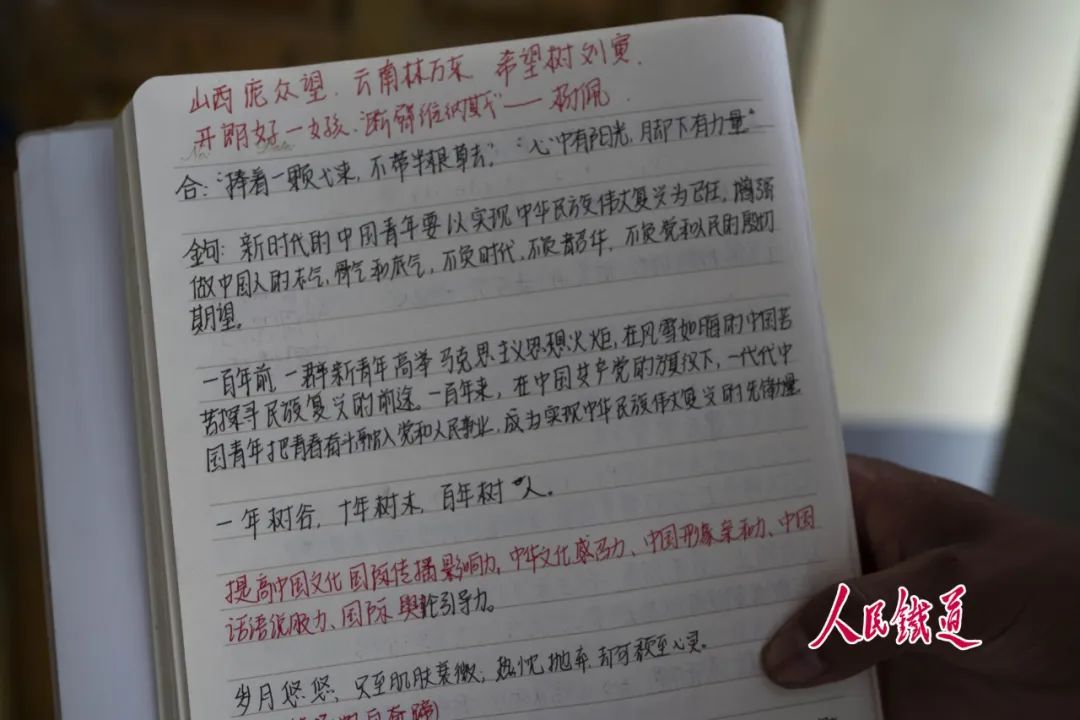 山西庞众望、云南林万东 希望树刘寅、
开朗好一女孩、断臂维纳斯——杨佩
合:“捧着一颗心来,不带半根草去”,“心中有阳光,脚下有力量”
金句:新时代的中国青年要以实现中华民族伟大复兴为己任,增强
做中国人的志气,骨气和底气,不负时代,不负韶华,不负党和人民的殷切
期望。
一百年前,一群新青年高举马克思主义思想火炬,在风雪如晦的中国苦
苦探寻民族复兴的前途。一百年来,在中国共产党的旗帜下,一代代中
国青年把青春奋斗融入党和人民事业,成为实现中华民族伟大复兴的先锋力量
一年树谷,十年树木,百年树人。
提高中国文化国际传播影响力,中华文化感召力、中国形象亲和力、中国
话语说服力、国际舆论引导力。
岁月悠悠,只至肌肤衰微,热忱抛弃,却可颓至心灵。
人民鐵道